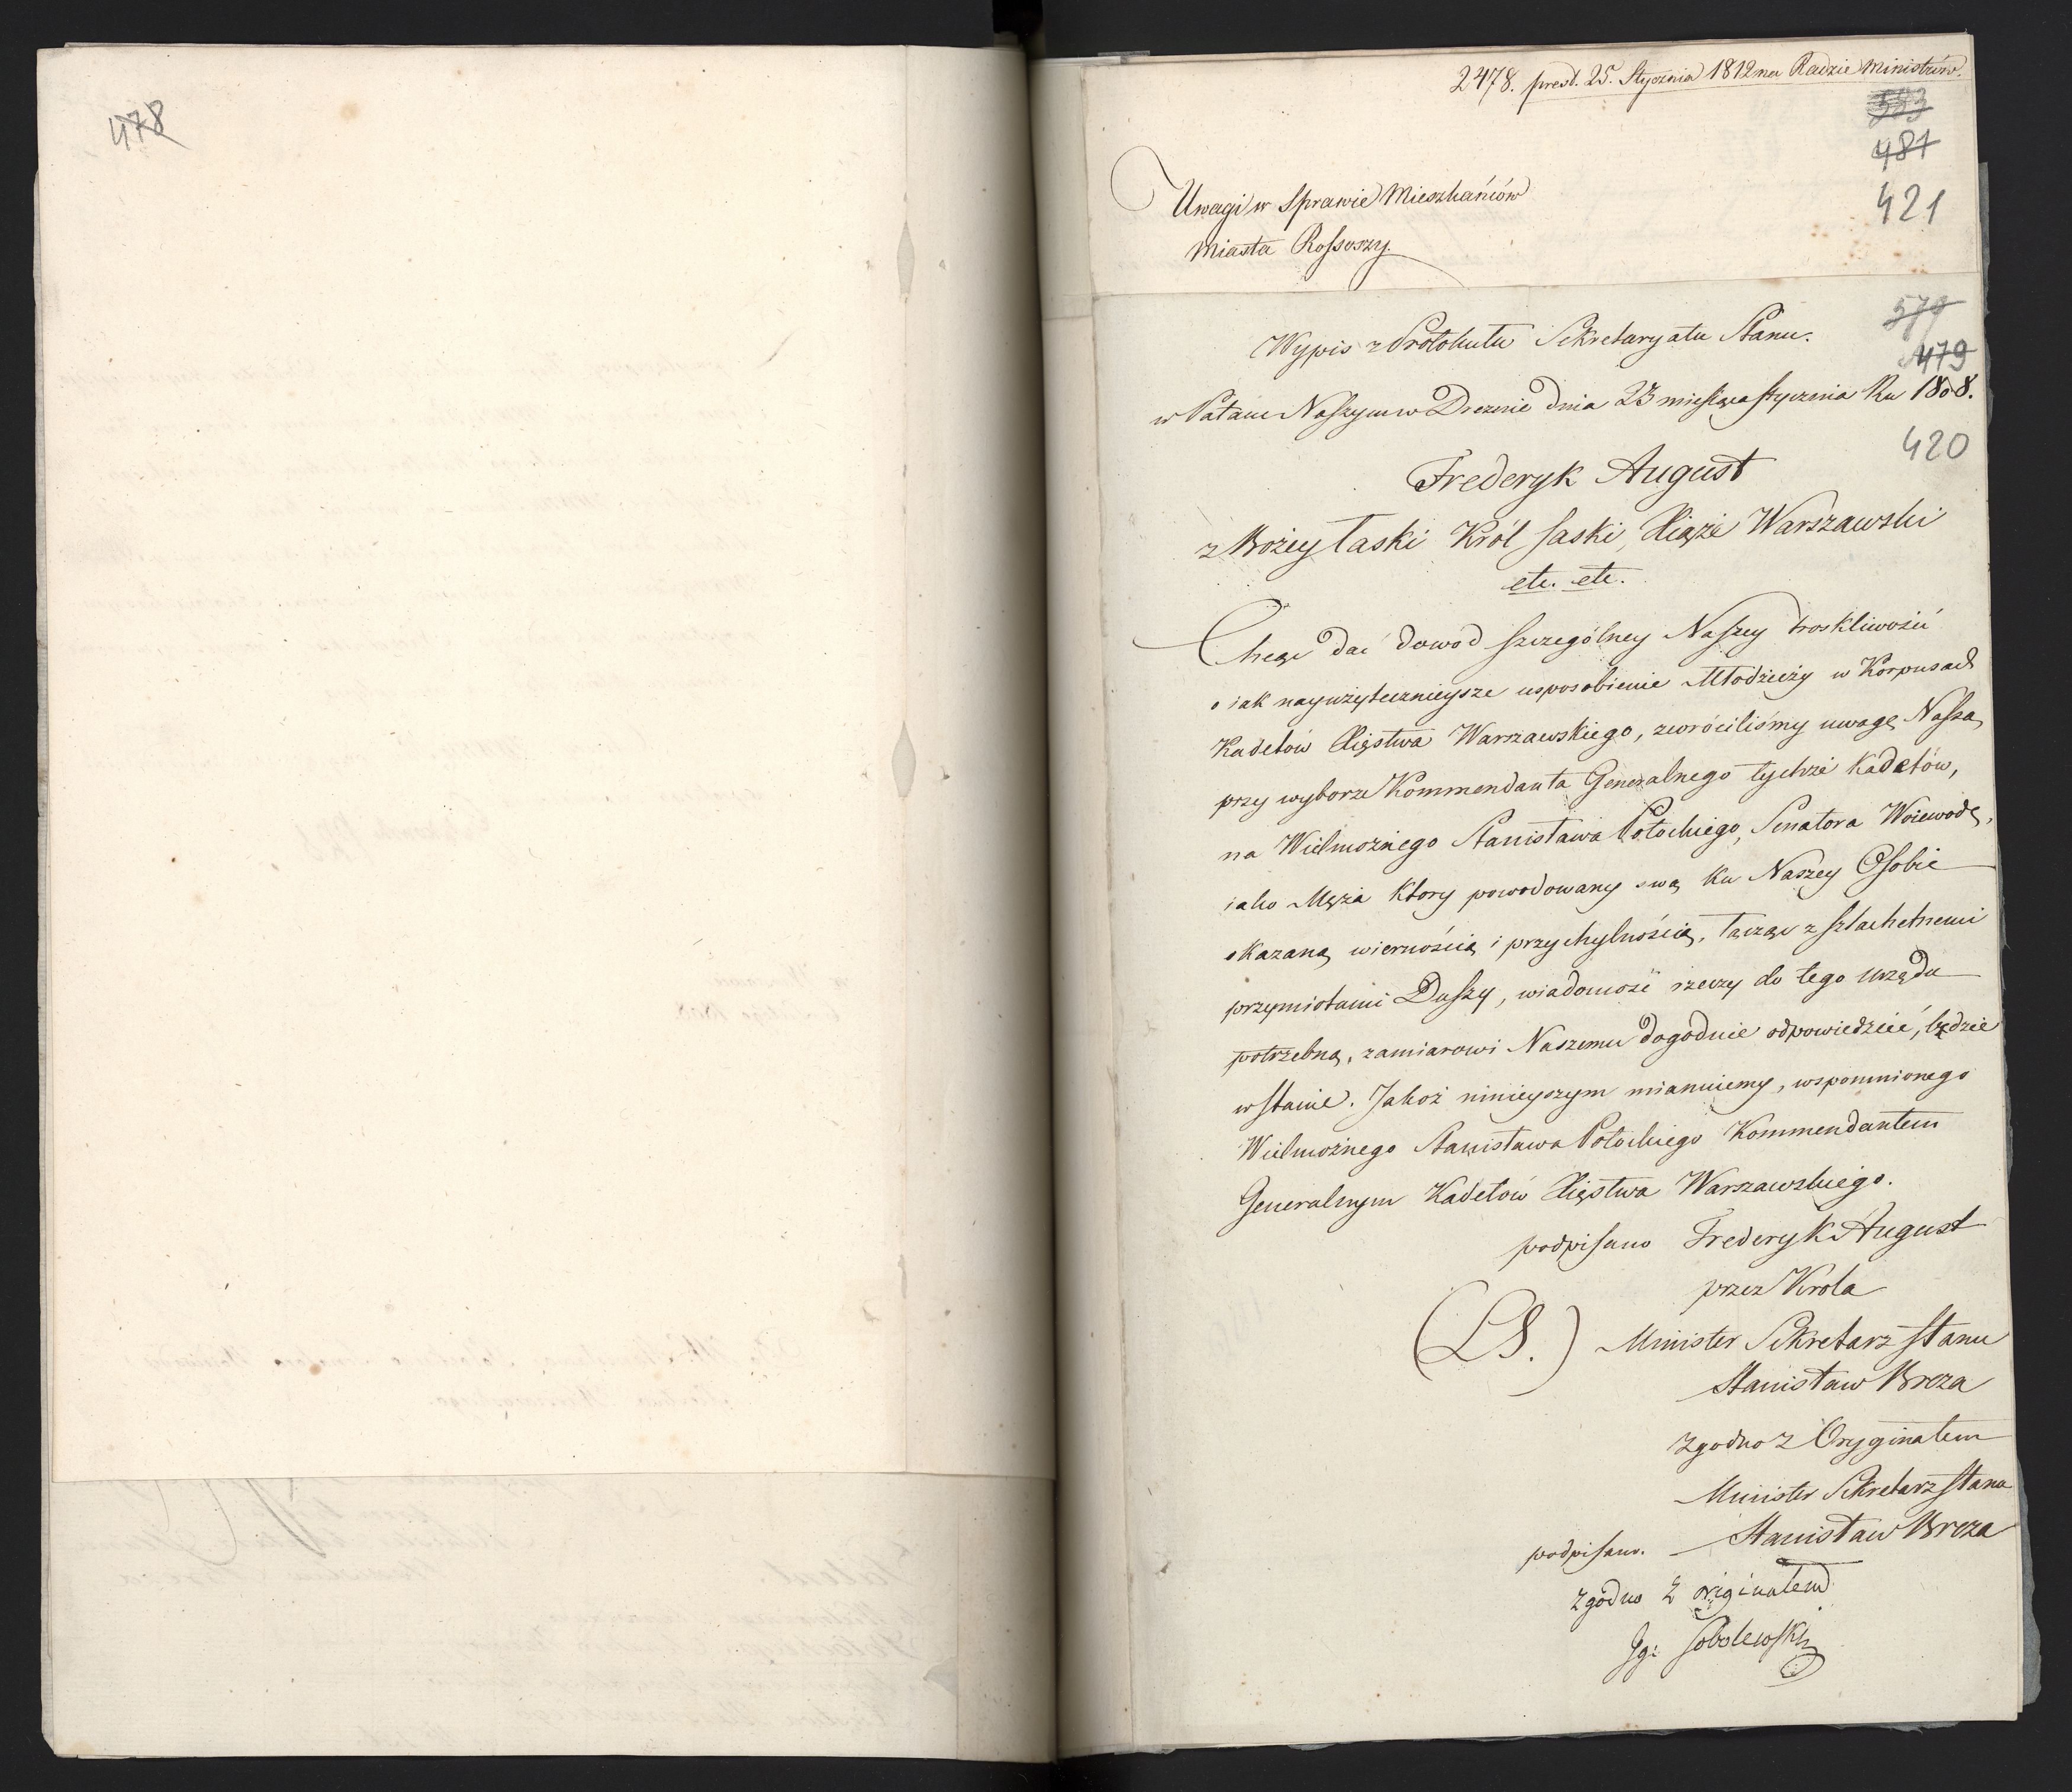 478
2478. prezt. 25. Stycznia 1812 na Radzie Ministrów.
583
481
421
Uwagi w Sprawie Mieszkańców
Miasta Rossoszy.
579
479
Wypis z Protokułu Sekretaryatu Stanu.
w Pałacu Naszym w Dreznie dnia 23 miesiąca stycznia Ru 1808.
420
Frederyk August
z Bożey Łaski Król Saski, Xiąże Warszawski
etc. etc.
Chcąc dać dowód szczególney Naszey troskliwości
o iak nayużytecznieysze usposobienie Młodzieży w Korpusach
Kadetów Xięstwa Warszawskiego, zwróciliśmy uwagę Naszą
przy wyborze Kommendanta Generalnego tychże Kadetów,
na Wielmożnego Stanisława Potockiego, Senatora Woiewodę,
iako Męża ktory powodowany swą ku Naszey Osobie
okazaną wiernością i przychylnością, łącząc z szlachetnemi
przymiotami Duszy, wiadomość rzeczy do tego urzędu
potrzebną, zamiarowi Naszemu dogodnie odpowiedzieć, będzie
w stanie. Jakoż ninieyszym mianuiemy, wspomnionego
Wielmożnego Stanisława Potockiego Kommendantem
Generalnym Kadetów Xięstwa Warszawskiego.
podpisano Frederyk August
przez Króla
(LS.) Minister Sekretarz Stanu
Stanisław Breza
Zgodno z Oryginałem
Minister Sekretarz Stanu
podpisano. Stanisław Breza
zgodno z originałem
Jg: Sobolewski